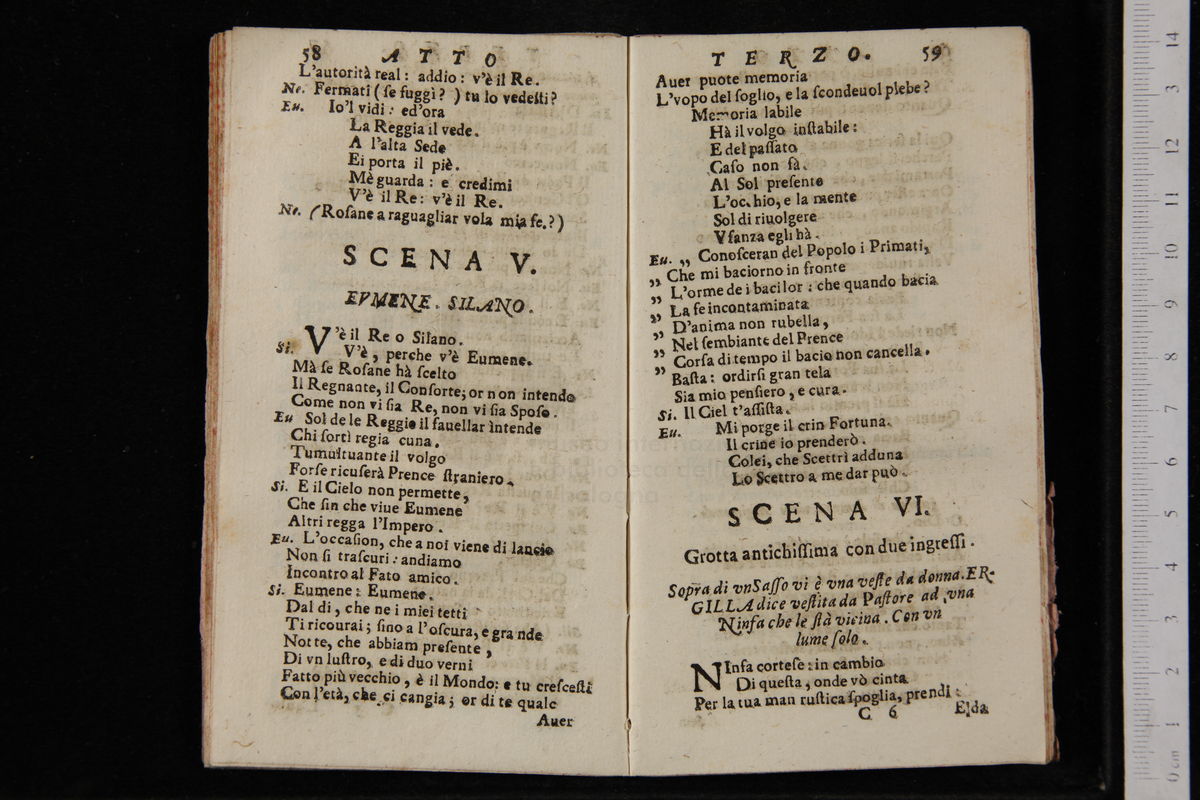 58 ATTO
L'autorità real: addio: v'è il Re.
Ne. Fermati (ſe fuggì? ) tu lo vedeſti?
Eu. Io'l vidi: ed'ora
La Reggia il vede.
A l'alta Sede
Ei porta il piè.
Mè guarda: e credimi
V'è il Re: v'è il Re.
Ne. (Roſane a raguagliar vola mia fe.?)
SCENA V.
EVMENE. SILANO.
V'è il Re o Silano.
Si. V'è, perche v'è Eumene.
Mà ſe Roſane hà ſcelto
Il Regnante, il Conſorte; or non intendo
Come non vi ſia Re, non vi ſia Spoſo.
Eu Sol de le Reggie il fauellar intende
Chi ſortì regia cuna.
Tumultuante il volgo
Forſe ricuſerà Prence ſtraniero.
Si. E il Cielo non permette,
Che fin che viue Eumene
Altri regga l'Impero.
Eu. L'occaſion, che a noi viene di lancio
Non ſi traſcuri: andiamo
Incontro al Fato amico.
Si. Eumene: Eumene.
Dal dì, che ne i miei tetti
Ti ricourai; fino a l'oſcura, e grande
Notte, che abbiam preſente,
Di vn luſtro, e di duo verni
Fatto più vecchio, è il Mondo: e tu creſceſti
Con l'età, che ci cangia; or di te quale
Auer
TERZO. 59
Auer puote memoria
L'vopo del ſoglio, e la ſcondeuol plebe?
Memoria labile
Hà il volgo inſtabile:
E del paſſato
Caſo non fà.
Al Sol preſente
L'occhio, e la mente
Sol di riuolgere
Vſanza egli hà.
Eu. ,, Conoſceran del Popolo i Primati,
,, Che mi baciorno in fronte
,, L'orme de i baci lor: che quando bacia
,, La fe incontaminata
,, D'anima non rubella,
,, Nel ſembiante del Prence
,, Corſa di tempo il bacio non cancella.
,, Baſta: ordirſi gran tela
Sia mio penſiero, e cura.
Si. Il Ciel t'aſſiſta.
Eu. Mi porge il crin Fortuna.
Il crine io prenderò.
Colei, che Scettri adduna
Lo Scettro a me dar può.
SCENA VI.
Grotta antichiſſima con due ingreſſi.
Sopra di vn Saſſo vi è vna veſte da donna. ER-
GILLA dice veſtita da Paſtore ad vna
Ninfa che le ſtà vicina. Con vn
lume ſolo.
NInfa corteſe: in cambio
Di queſta, onde vò cinta
Per la tua man ruſtica ſpoglia, prendi:
C 6 Elda